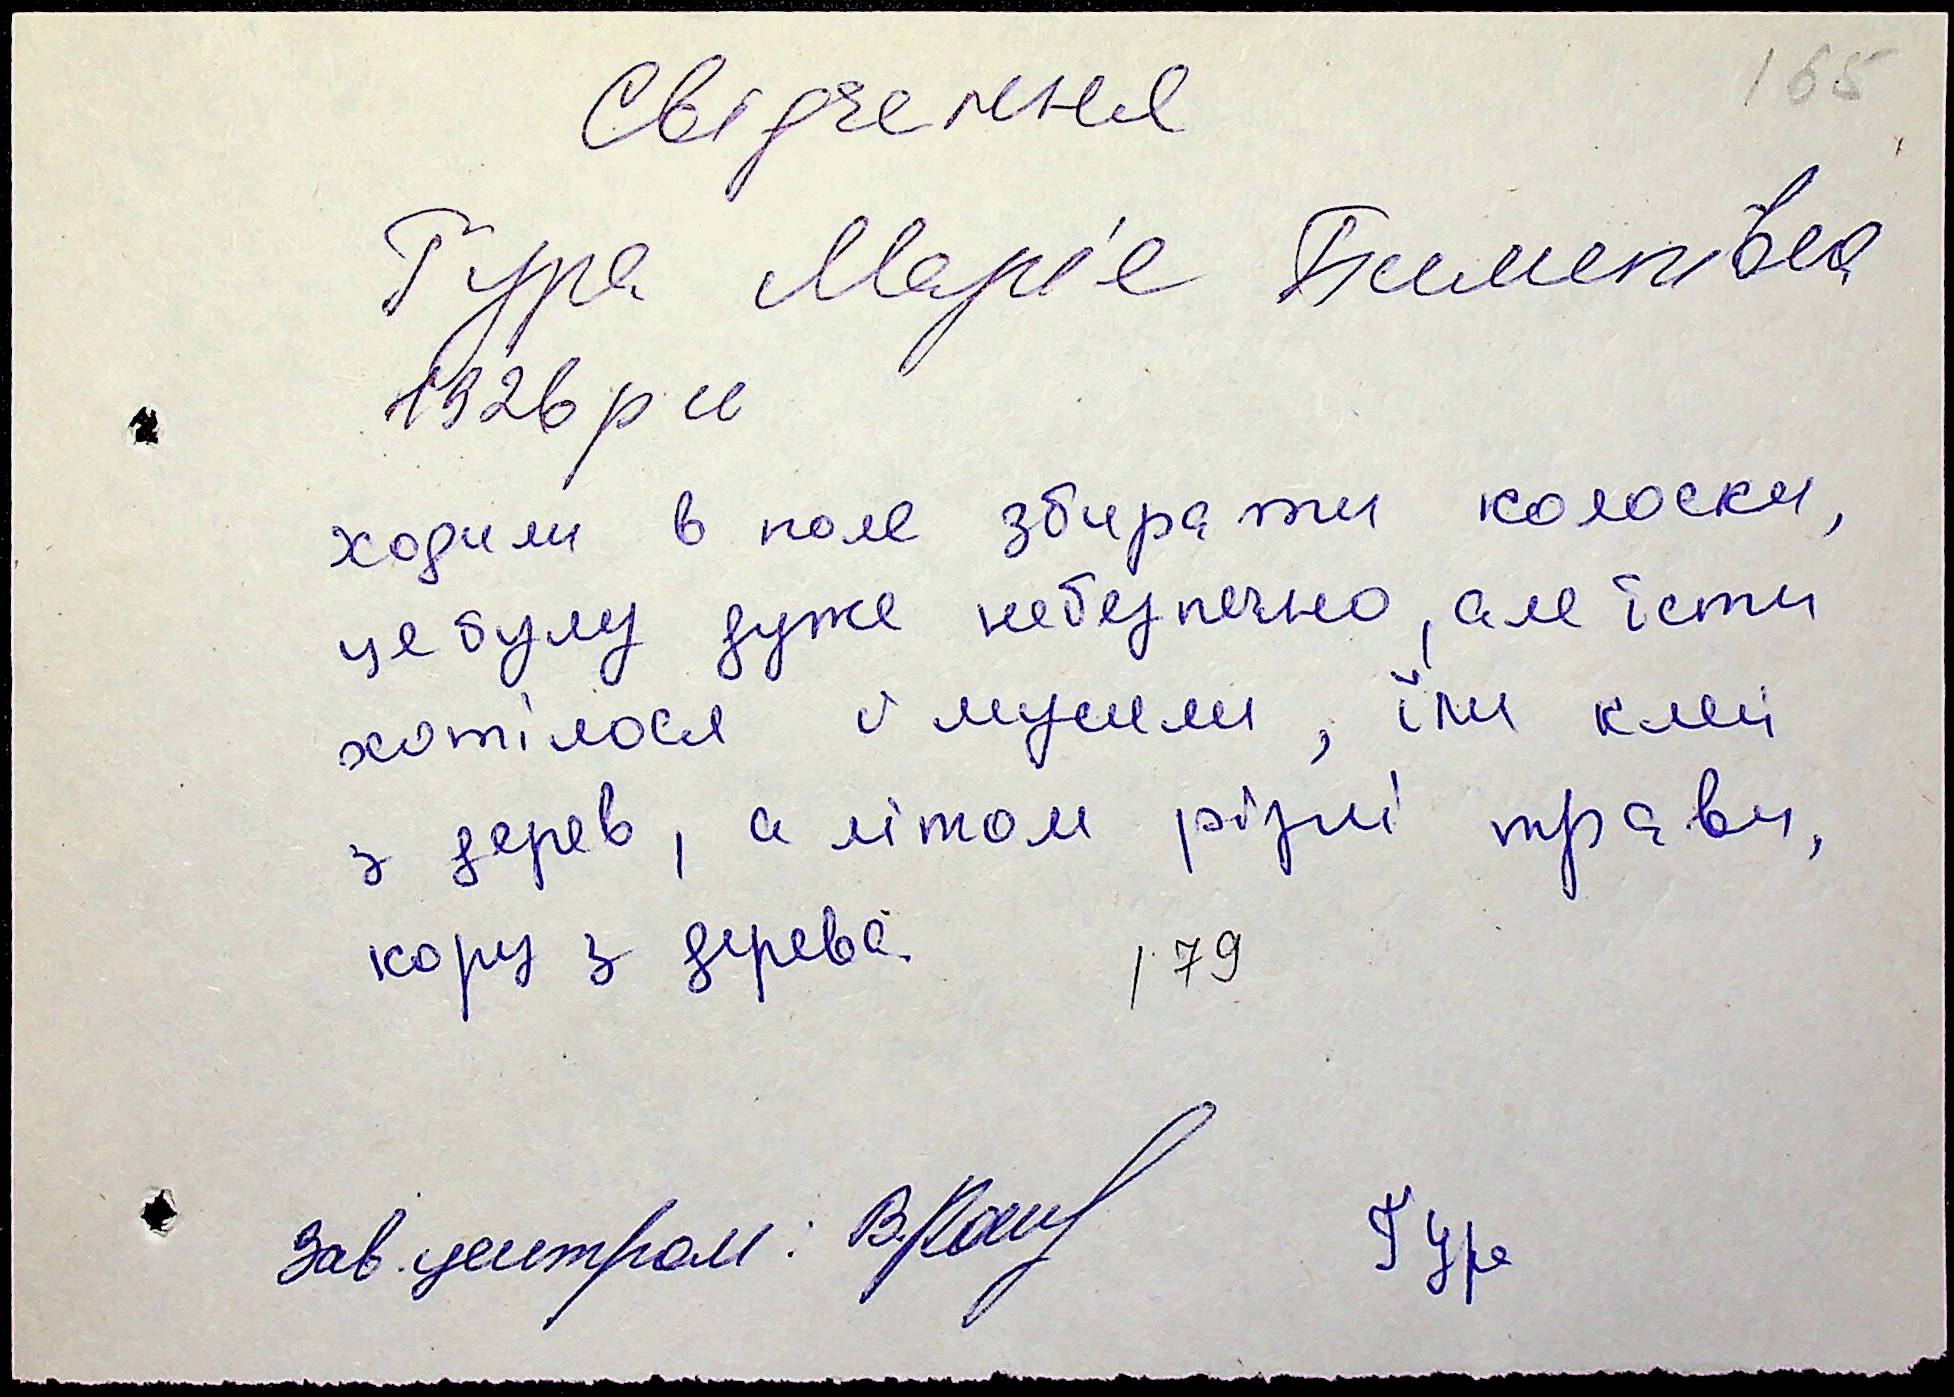 165
Свідчення
Гура Марія Пименівна
1926 р н
ходили в поле збирати колоски,
це було дуже небезпечно, але їсти
хотілося і мусили, їли клей
з дерев, а літом різні трави,
кору з дерева.
179
Зав. центром:
Гура